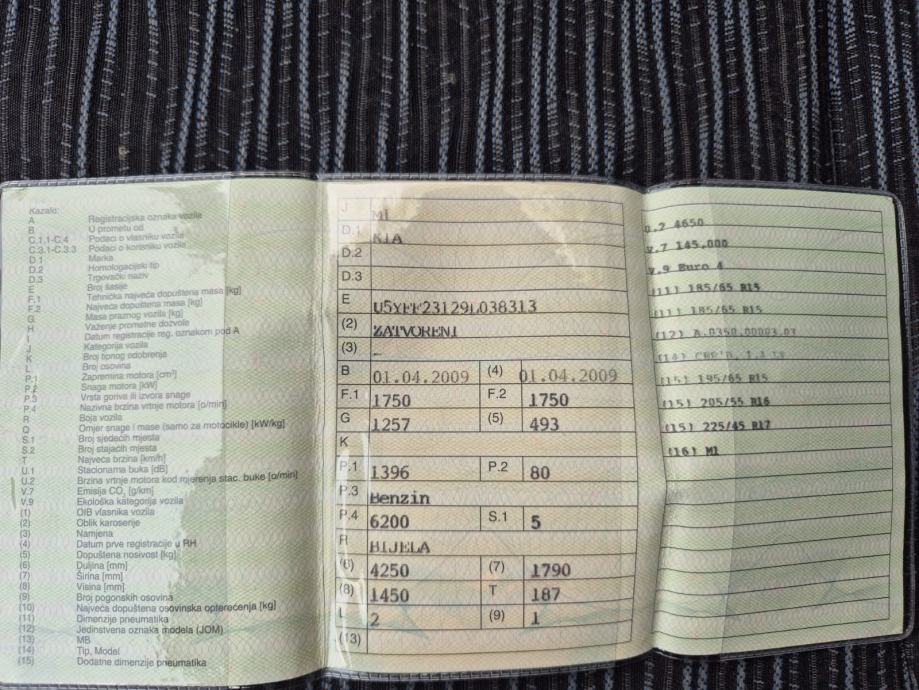 Kazalo:
A Registracijska oznaka vozila
B U prometu od
C.1.1-C.4 Podaci o vlasniku vozila
C.3.1-C.3.3 Podaci o korisniku vozila
D.1 Marka
D.2 Homologacijski tip
D.3 Trgovački naziv
E Broj šasije
F.1 Tehnička najveća dopuštena masa [kg]
F.2 Najveća dopuštena masa [kg]
G Masa praznog vozila [kg]
H Važenje prometne dozvole
I Datum registracije reg. oznakom pod A
J Kategorija vozila
K Broj tipnog odobrenja
L Broj osovina
P.1 Zapremina motora [cm³]
P.2 Snaga motora [kW]
P.3 Vrsta goriva ili izvora snage
P.4 Nazivna brzina vrtnje motora [o/min]
R Boja vozila
Q Omjer snage i mase (samo za motocikle) [kW/kg]
S.1 Broj sjedećih mjesta
S.2 Broj stajaćih mjesta
T Najveća brzina [km/h]
U.1 Stacionarna buka [dB]
U.2 Brzina vrtnje motora kod mjerenja stac. buke [o/min]
V.7 Emisija CO₂ [g/km]
V.9 Ekološka kategorija vozila
(1) OIB vlasnika vozila
(2) Oblik karoserije
(3) Namjena
(4) Datum prve registracije u RH
(5) Dopuštena nosivost [kg]
(6) Duljina [mm]
(7) Širina [mm]
(8) Visina [mm]
(9) Broj pogonskih osovina
(10) Najveća dopuštena osovinska opterećenja [kg]
(11) Dimenzije pneumatika
(12) Jedinstvena oznaka modela (JOM)
(13) MB
(14) Tip, Model
(15) Dodatne dimenzije pneumatika
J M1
D.1 KIA
D.2
D.3
E U5YFF23129L038313
(2) ZATVORENI
(3) –
B 01.04.2009 (4) 01.04.2009
F.1 1750 F.2 1750
G 1257 (5) 493
K
P.1 1396 P.2 80
P.3 Benzin
P.4 6200 S.1 5
R BIJELA
(6) 4250 (7) 1790
(8) 1450 T 187
L 2 (9) 1
(13)
U.2 4650
V.7 145,000
V.9 Euro 4
(11) 185/65 R15
(11) 185/65 R15
(12) A.0350.00003.03
(14)
(15) 195/65 R15
(15) 205/55 R16
(15) 225/45 R17
(16) M1